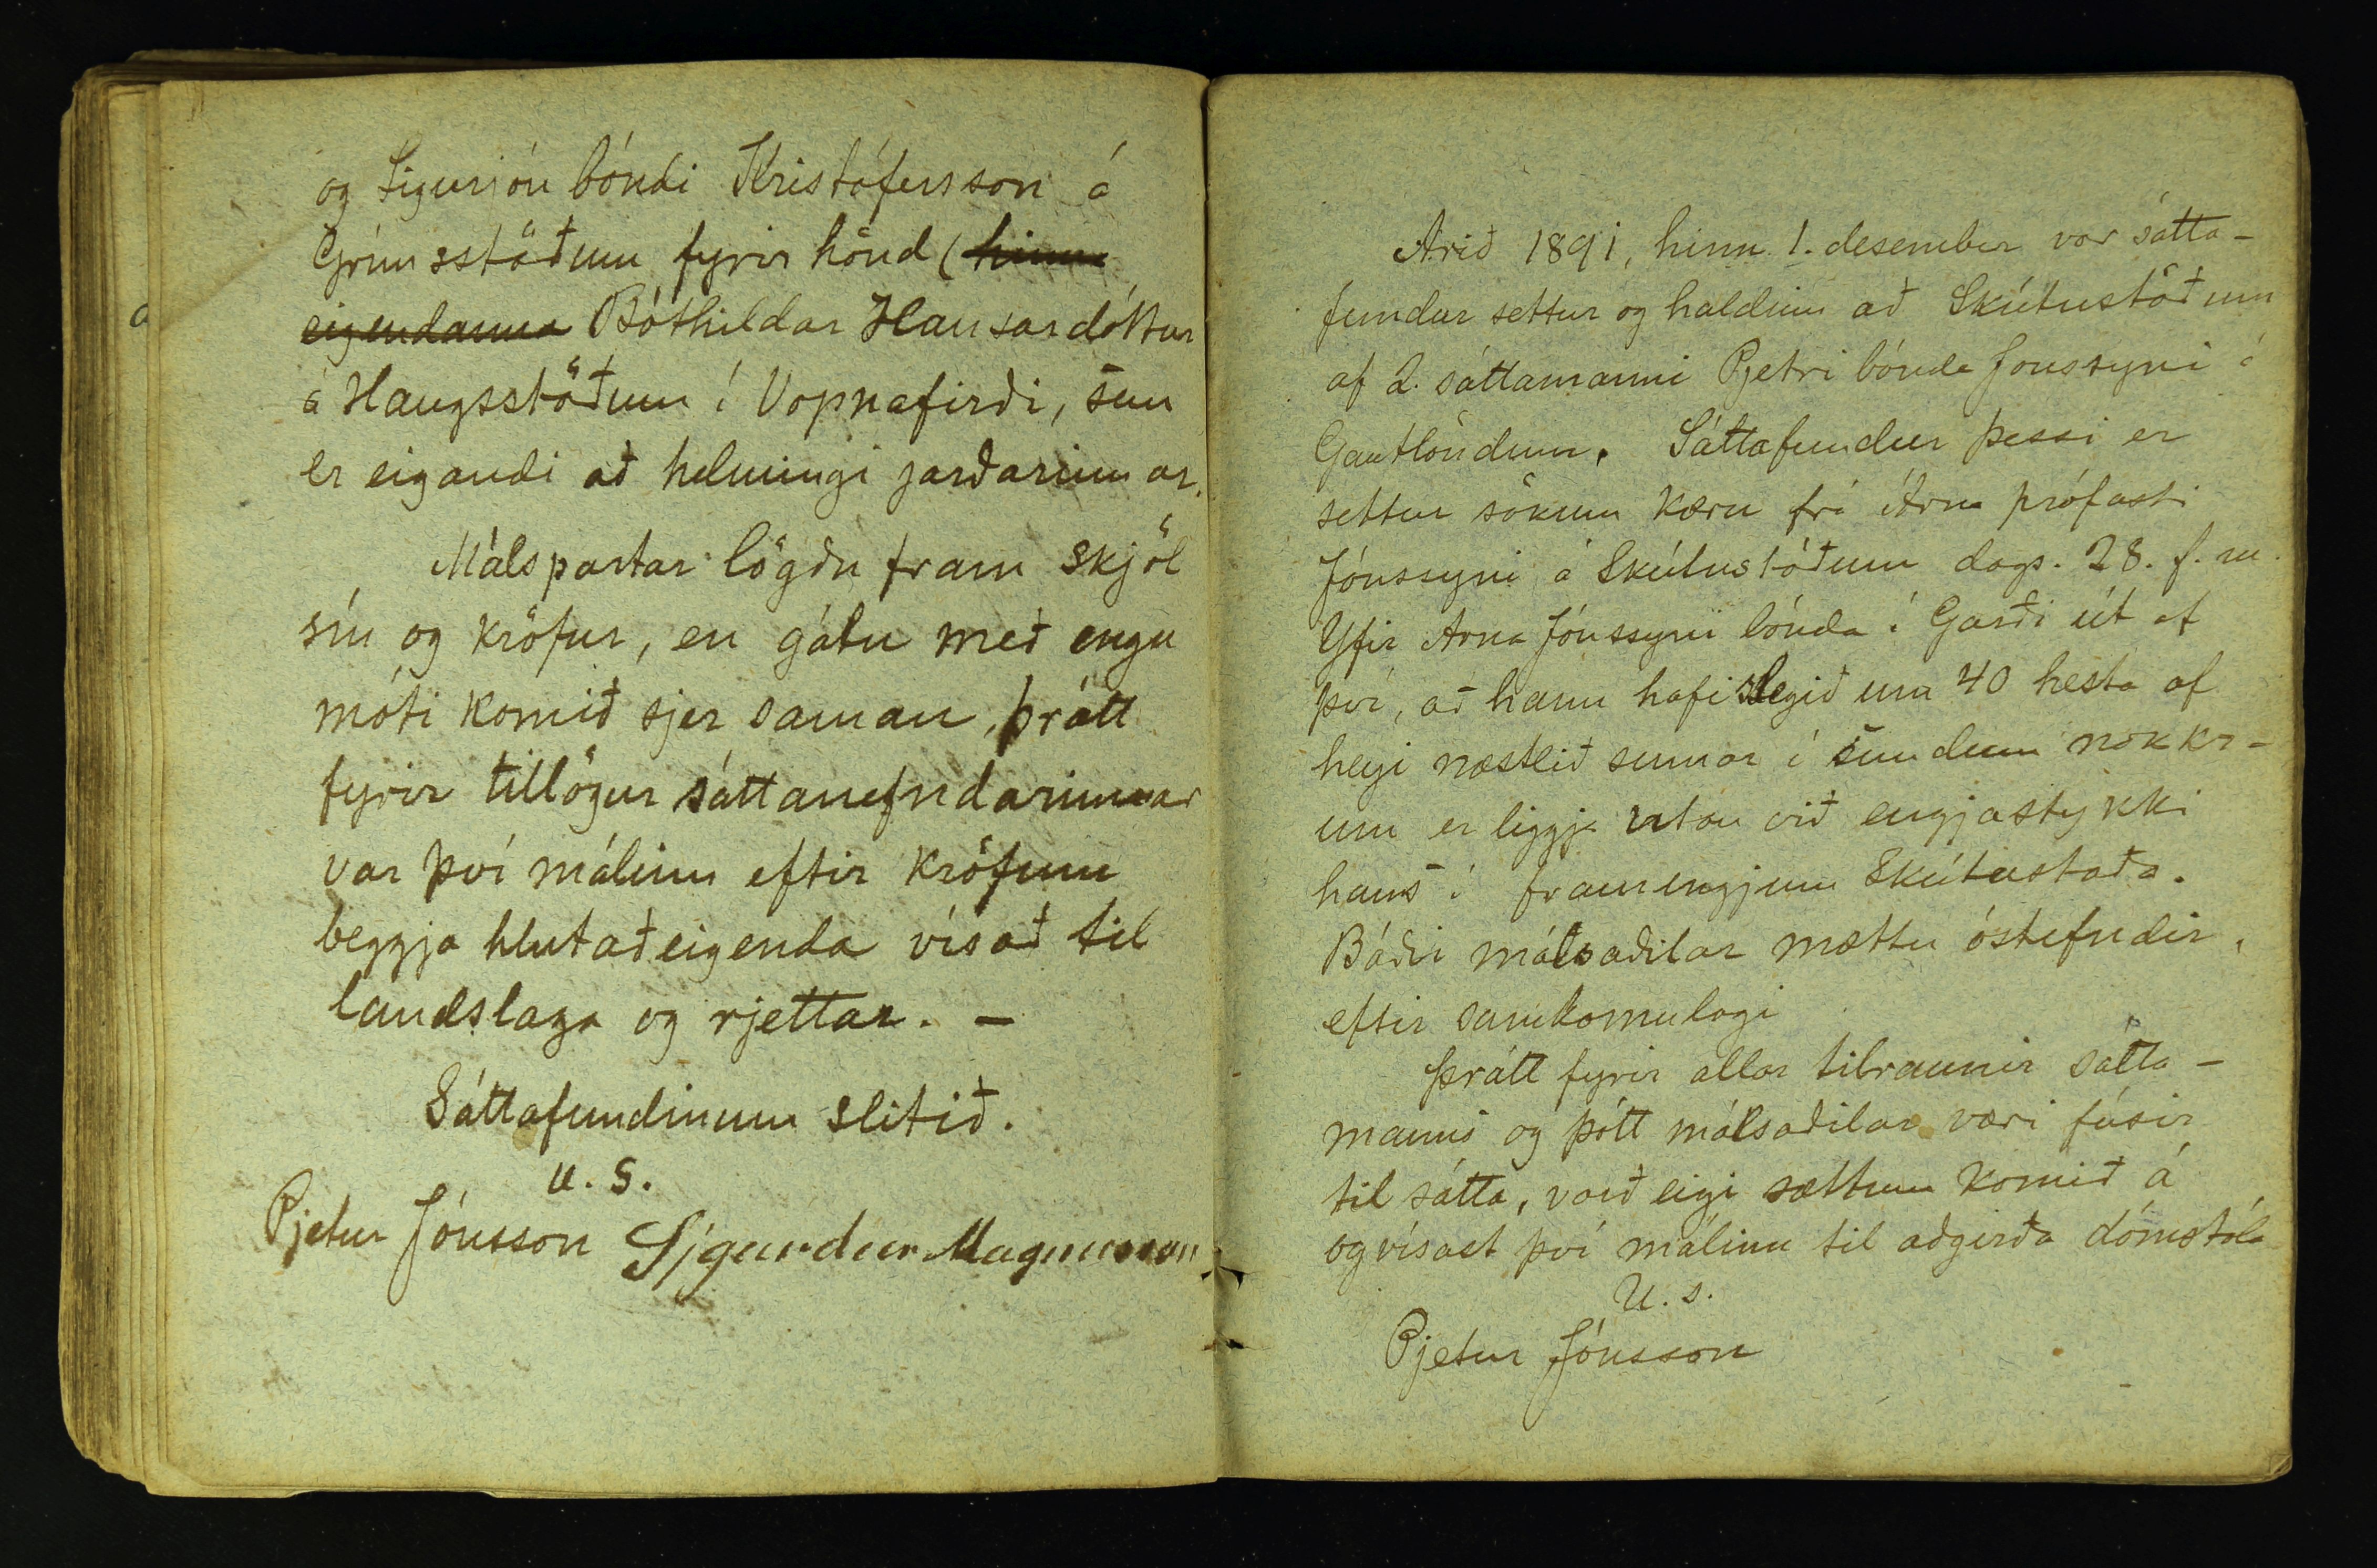 og Sigurjón bóndi Kristófersson á
Grímsstöðum fyrir hönd (hinna
eigendanna Bóthildar Hansardóttur
á Haugsstöðum í Vopnafirði, sem
er eigandi að helmingi jarðarinnar.
Málspartar lögðu fram skjöl
sín og kröfur, en gátu með engu
móti komið sjer saman, þrátt
fyrir tillögur sáttanefndarinnar
var því málinu eftir kröfum
beggja hlutaðeigenda vísað til
landslaga og rjettar. —
Sáttafundinum slitið.
u. s.
Pjetur Jónsson Sigurdur Magnusson
Árið 1891, hinn 1. desember var sátta-
fundur settur og haldinn að Skútustöðum
af 2. sáttamanni Pjetri bónda Jónssyni á
Gautlöndum. Sáttafundur þessi er
settur sökum kæru frá Árna prófasti
Jónssyni á Skútustöðum dags. 28. f. m.
Yfir Arna Jónssyni bónda í Garði út af
því, að hann hafi slegið um 40 hesta af
heyi næstlið sumar í sundum nokkr-
um er liggja utan við engjastykki
hans í framengjum Skútustaða.
Báðir málsaðilar mættu óstefndir,
eftir samkomulagi
Þrátt fyrir allar tilraunir sátta-
manns og þótt málsaðilar væri fúsir
til sátta, varð eigi sættum komið á
og vísast því málinu til aðgerða dómstóla
U. s.
Pjetur Jónsson